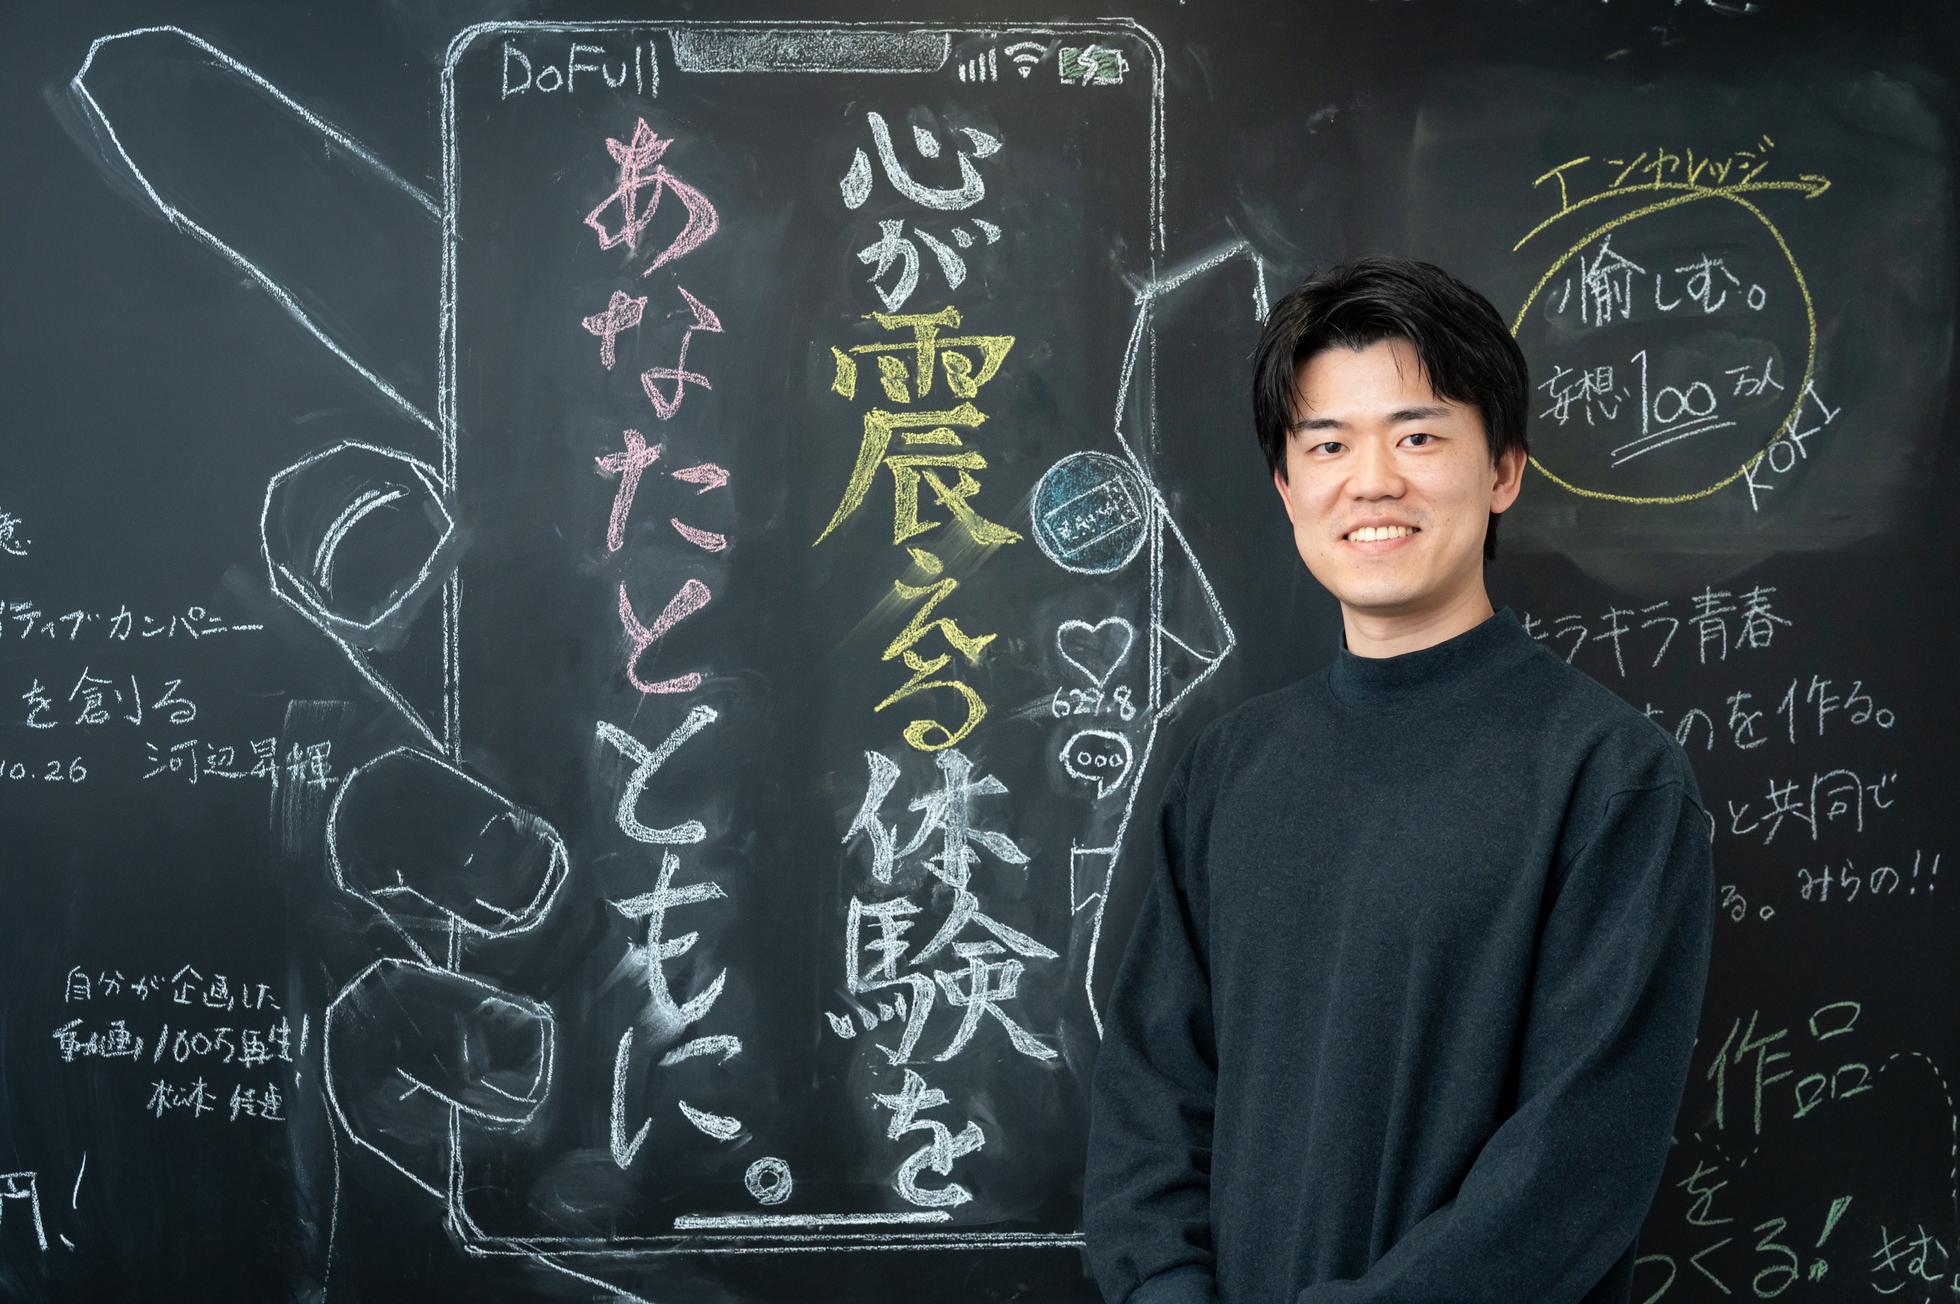 DoFull
心が震える体験を
あなたとともに。
627.8
エンゲレッジ
愉しむ。
妄想100万人
KOKI
ギラ青春
のを作る。
と共同で
る。みらの!!
作品
を
つくる!
きむ
ティブカンパニー
を創る
10.26 河辺昇輝
自分が企画した
動画100万再生!
松本
円!